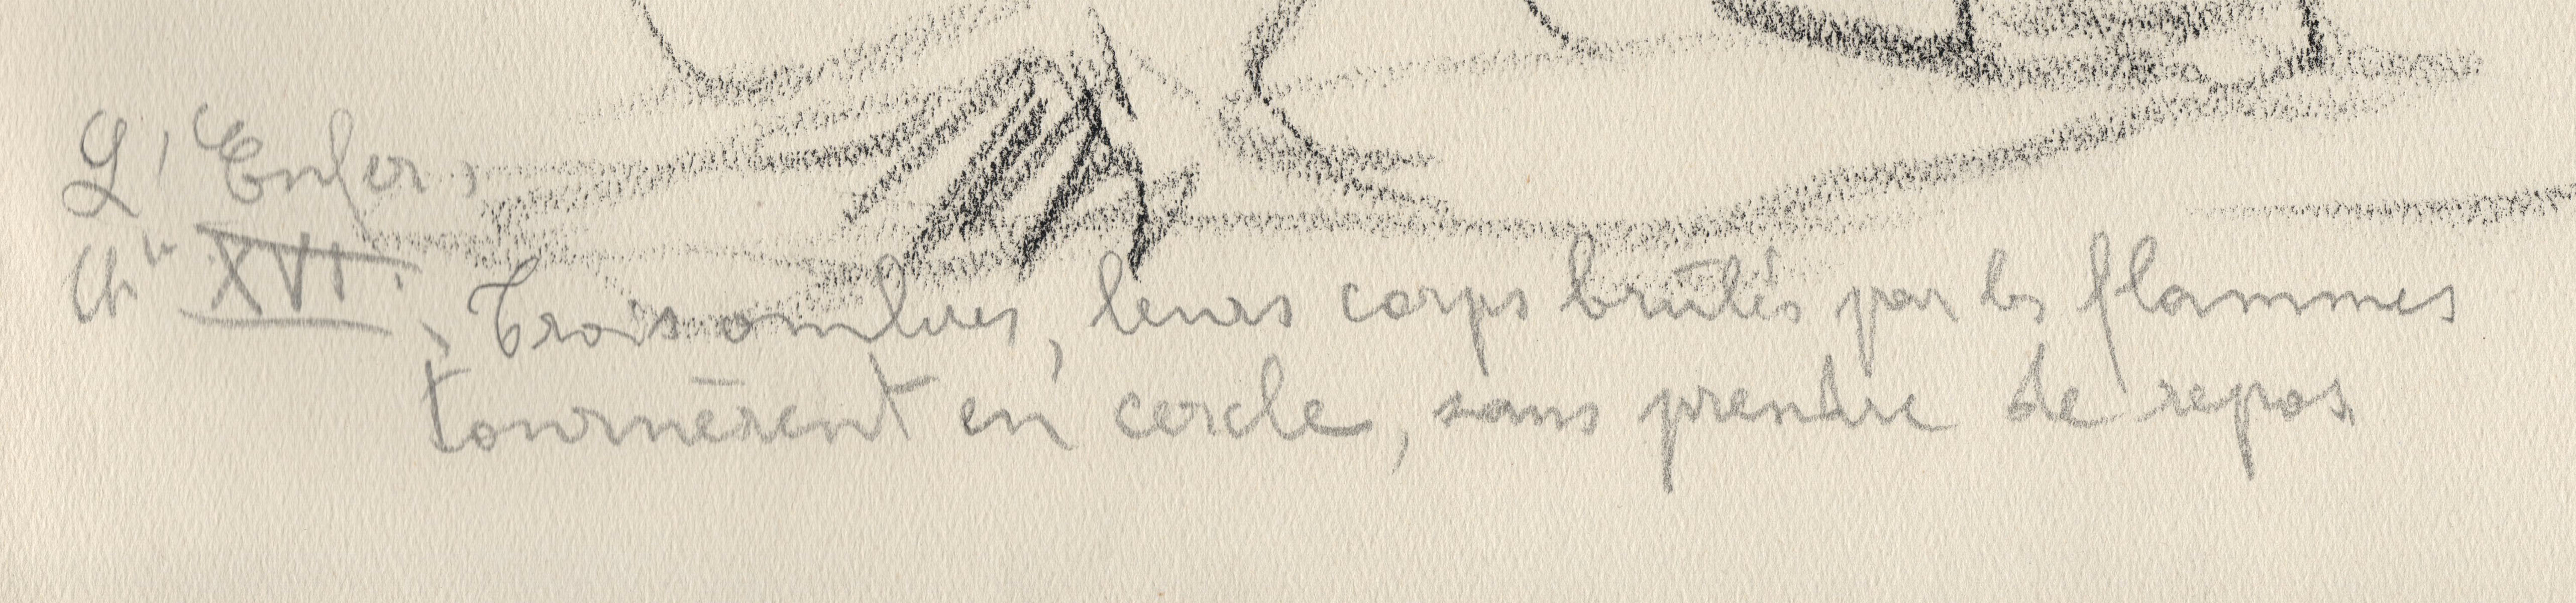 L'Enfer,
Ch XVI.
Trois ombres, leurs corps brûlés par les flammes
tournèrent en cercle, sans prendre de repos